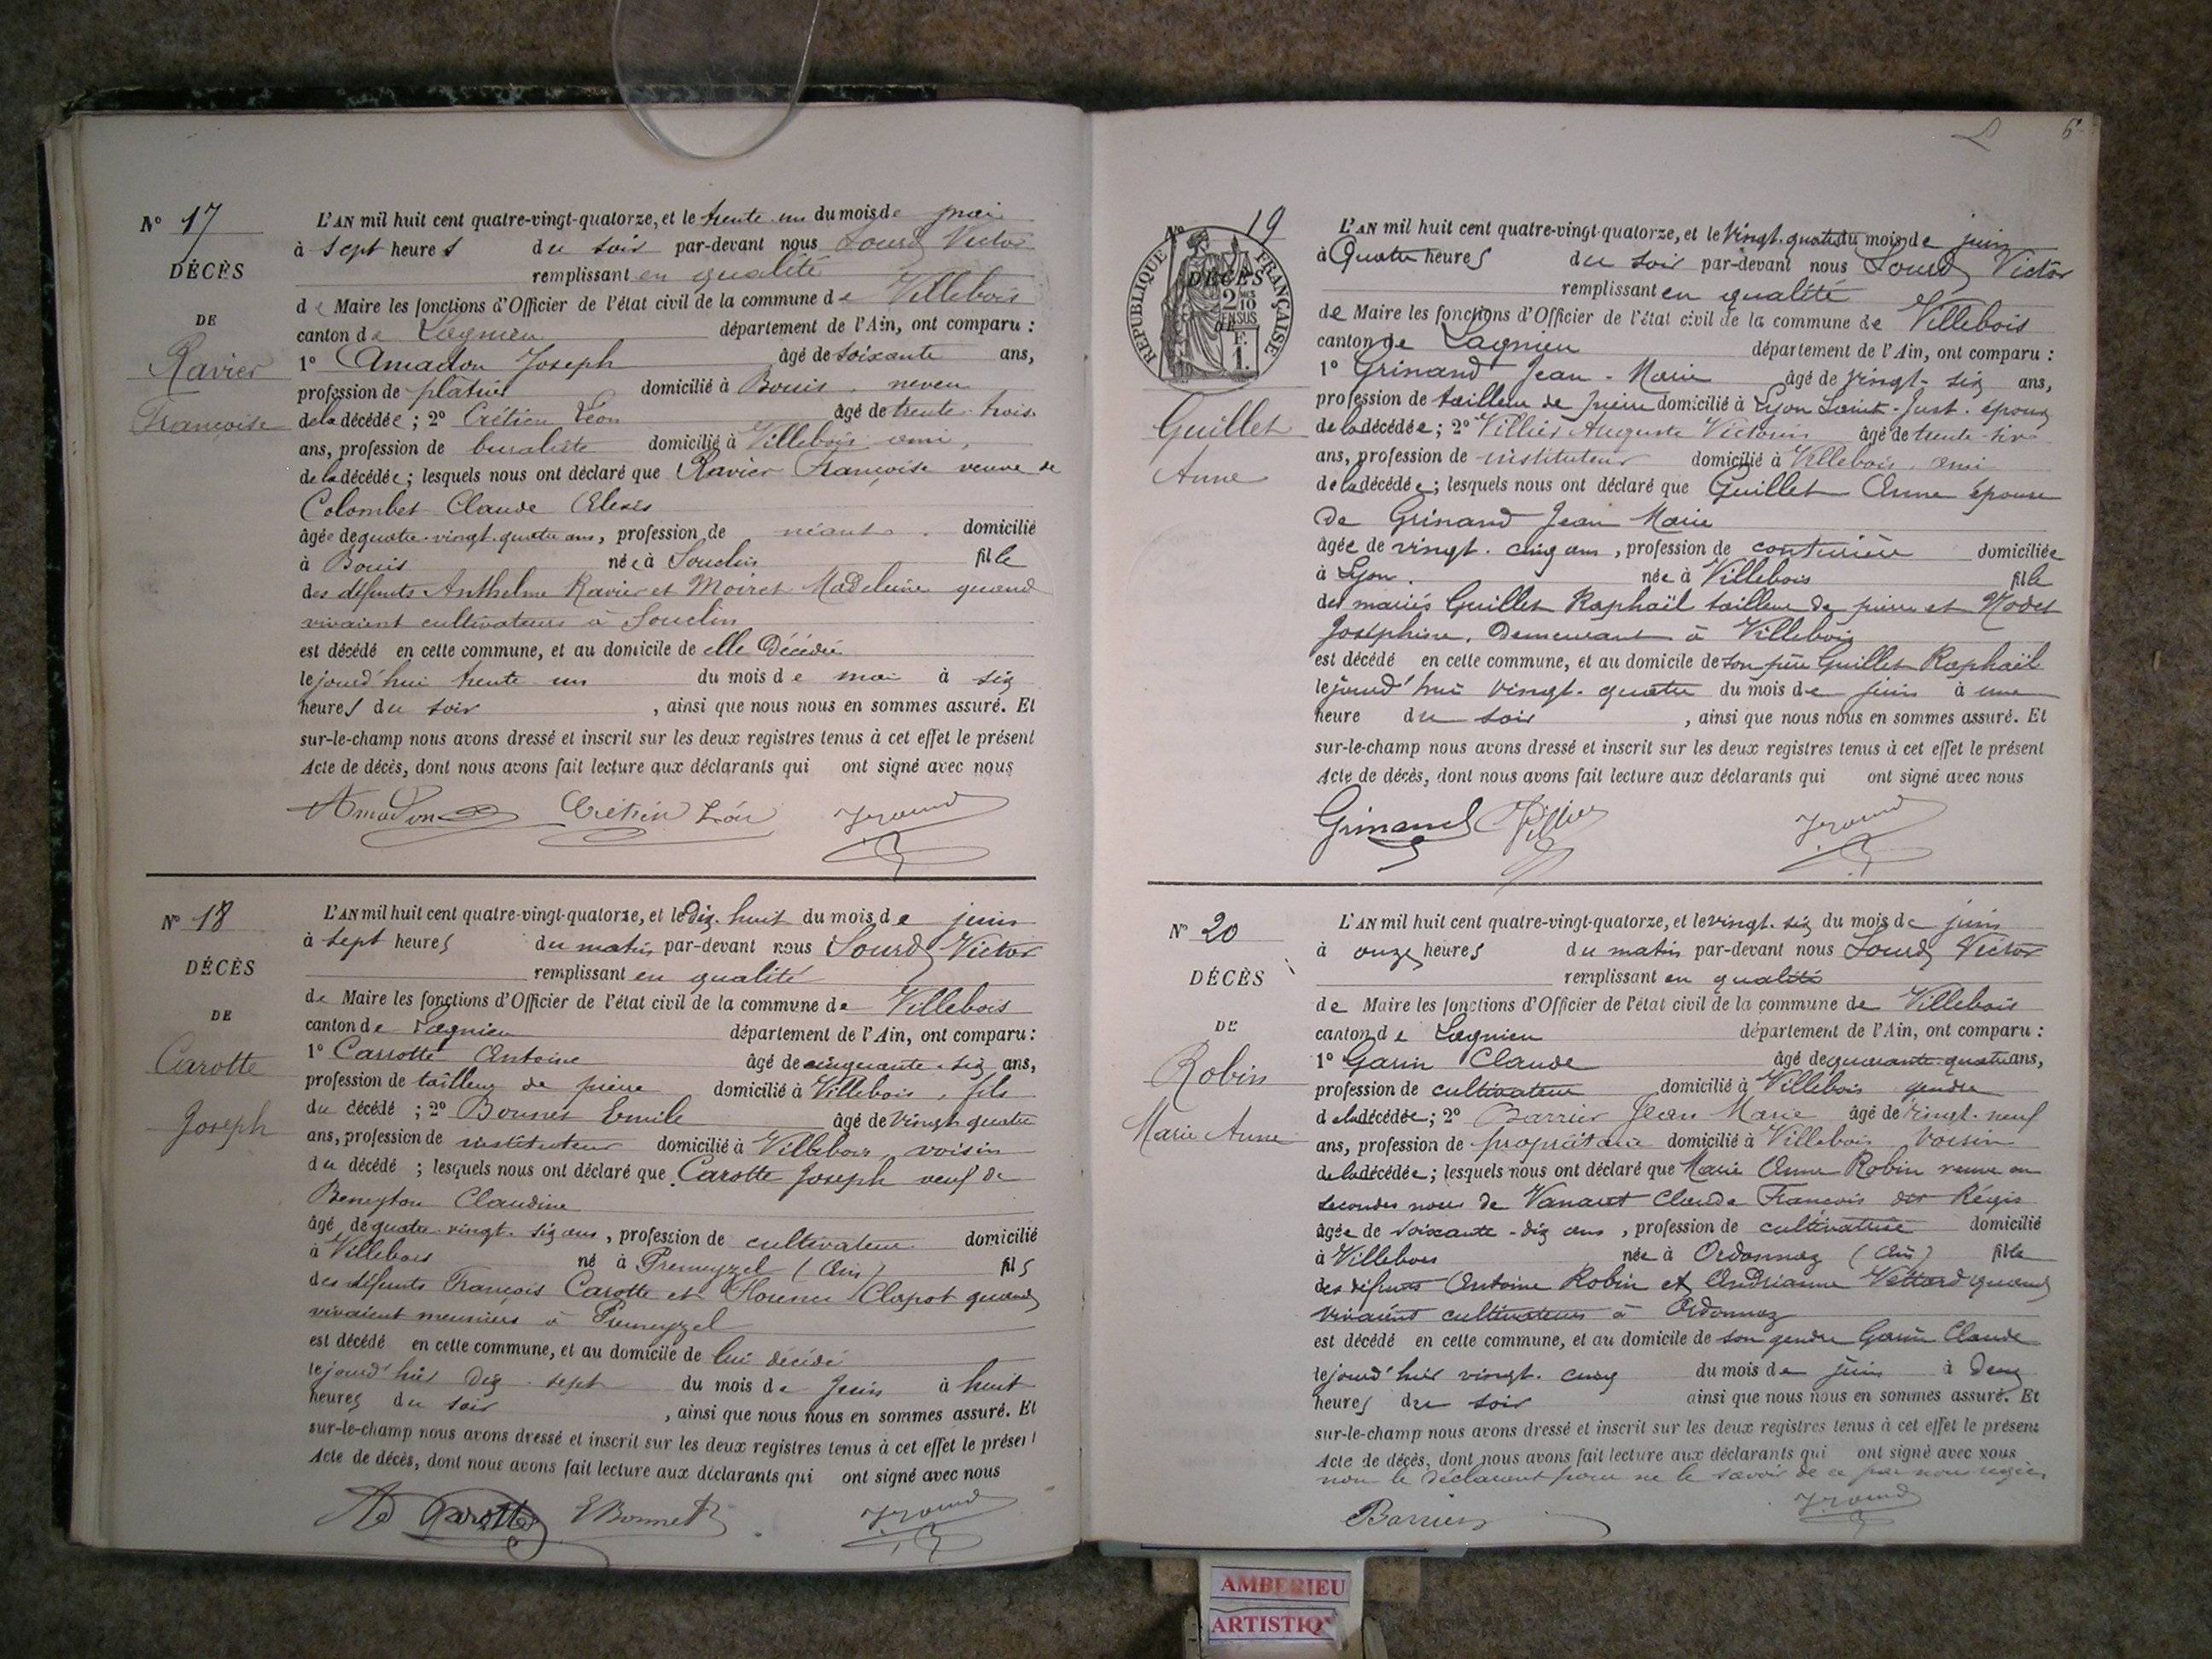 Nº 17
DÉCÈS
DE
Ravier
Françoise
L'AN mil huit cent quatre-vingt-quatorze, et le trente un du mois de mai
à sept heures du soir par-devant nous Lourd Victor
remplissant en qualité
de Maire les fonctions d'Officier de l'état civil de la commune de Villebois
canton de Lagnieu département de l'Ain, ont comparu :
1º Amadon Joseph âgé de soixante ans,
profession de platrier domicilié à Bouis, neveu
de la décédée ; 2º Crétien Léon âgé de trente-trois
ans, profession de buraliste domicilié à Villebois ami,
de la décédée ; lesquels nous ont déclaré que Ravier Françoise veuve de
Colombet Claude Alexis
âgée de quatre-vingt-quatre ans, profession de néant. domicilié
à Bouis née à Souclin fille
des défunts Anthelme Ravier et Moiret Madeleine quand
vivaient cultivateurs à Souclin
est décédé en cette commune, et au domicile de elle décédée
le jourd'hui trente un du mois de mai à six
heures du soir , ainsi que nous nous en sommes assuré. Et
sur-le-champ nous avons dressé et inscrit sur les deux registres tenus à cet effet le présent
Acte de décès, dont nous avons fait lecture aux déclarants qui ont signé avec nous
Amadon Crétien Léon
Nº 18
DÉCÈS
DE
Carotte
Joseph
L'AN mil huit cent quatre-vingt-quatorze, et le dix-huit du mois de juin
à sept heures du matin par-devant nous Lourd Victor
remplissant en qualité
de Maire les fonctions d'Officier de l'état civil de la commune de Villebois
canton de Lagnieu département de l'Ain, ont comparu :
1º Carrotte Antoine âgé de cinquante-six ans,
profession de tailleur de pierre domicilié à Villebois, fils
du décédé ; 2º Bonnet Emile âgé de vingt quatre
ans, profession de instituteur domicilié à Villebois, voisin
du décédé ; lesquels nous ont déclaré que Carotte Joseph veuf de
Beneyton Claudine
âgé de quatre-vingt-six ans, profession de cultivateur domicilié
à Villebois né à Premeyzel (Ain) fils
des défunts François Carotte et Florence Clapot quand
vivaient meuniers à Premeyzel
est décédé en cette commune, et au domicile de lui décédé
le jourd'hier dix-sept du mois de juin à huit
heures du soir , ainsi que nous nous en sommes assuré. Et
sur-le-champ nous avons dressé et inscrit sur les deux registres tenus à cet effet le présent
Acte de décès, dont nous avons fait lecture aux déclarants qui ont signé avec nous
Carotte EBonnet
6
Nº 19
RÉPUBLIQUE FRANÇAISE
DÉCÈS
2 10
EN SUS
F.
1.
Guillet
Anne
L'AN mil huit cent quatre-vingt-quatorze, et le vingt-quatre du mois de juin
à Quatre heures du soir par-devant nous Lourd Victor
remplissant en qualité
de Maire les fonctions d'Officier de l'état civil de la commune de Villebois
canton de Lagnieu département de l'Ain, ont comparu :
1º Grinand Jean-Marie âgé de vingt-six ans,
profession de tailleur de pierre domicilié à Lyon Saint-Just. époux
de la décédée ; 2º Villier Auguste Victorin âgé de trente-six
ans, profession de instituteur domicilié à Villebois ami
de la décédée ; lesquels nous ont déclaré que Guillet Anne épouse
de Grinand Jean Marie
âgée de vingt-cinq ans, profession de couturière domiciliée
à Lyon. née à Villebois fille
des mariés Guillet Raphaël tailleur de pierre et Modet
Joséphine, Demeurant à Villebois
est décédé en cette commune, et au domicile de son père Guillet Raphaël
le jourd'hui vingt-quatre du mois de juin à une
heure du soir , ainsi que nous nous en sommes assuré. Et
sur-le-champ nous avons dressé et inscrit sur les deux registres tenus à cet effet le présent
Acte de décès, dont nous avons fait lecture aux déclarants qui ont signé avec nous
Grinand Villier
Nº 20
DÉCÈS
DE
Robin
Marie Anne
L'AN mil huit cent quatre-vingt-quatorze, et le vingt-six du mois de juin
à onze heures du matin par-devant nous Lourd Victor
remplissant en qualité
de Maire les fonctions d'Officier de l'état civil de la commune de Villebois
canton de Lagnieu département de l'Ain, ont comparu :
1º Garin Claude âgé de quarante-quatre ans,
profession de cultivateur domicilié à Villebois gendre
de la décédée ; 2º Barrier Jean Marie âgé de vingt-neuf
ans, profession de propriétaire domicilié à Villebois voisin
de la décédée ; lesquels nous ont déclaré que Marie Anne Robin veuve en
secondes noces de Vanaret Claude François dit Régis
âgée de soixante-dix ans, profession de cultivatrice domicilié
à Villebois née à Ordonnaz (Ain) fille
des défunts Antoine Robin et Andrianne Vettard quand
vivaient cultivateurs à Ordonnaz
est décédé en cette commune, et au domicile de son gendre Garin Claude
le jourd'hier vingt-cinq du mois de juin à deux
heures du soir ainsi que nous nous en sommes assuré. Et
sur-le-champ nous avons dressé et inscrit sur les deux registres tenus à cet effet le présent
Acte de décès, dont nous avons fait lecture aux déclarants qui ont signé avec nous
non le déclarant pour ne le savoir de ce par nous requis
Barrier
AMBERIEU
ARTISTIQ